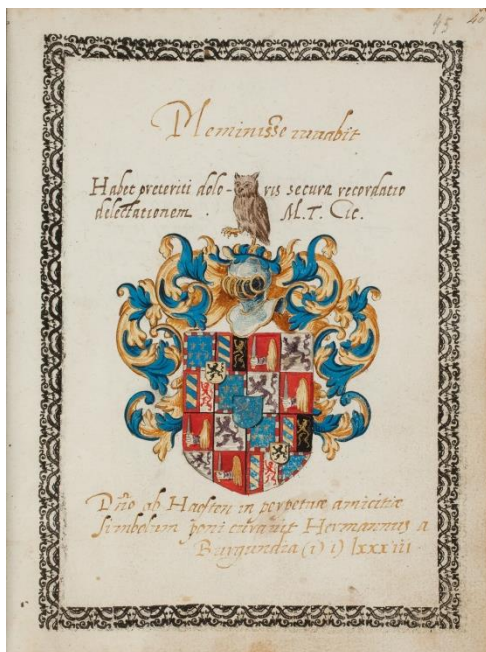 45
Meminiſse iuuabit
Habet preteriti dolo- ris secura recordatio
delectationem . M. T. Cic.
Dño ab Haeften in perpetuæ amicitiæ
simbolum poni curauit Hermannus a
Burgundia (I) I) lxxxiii